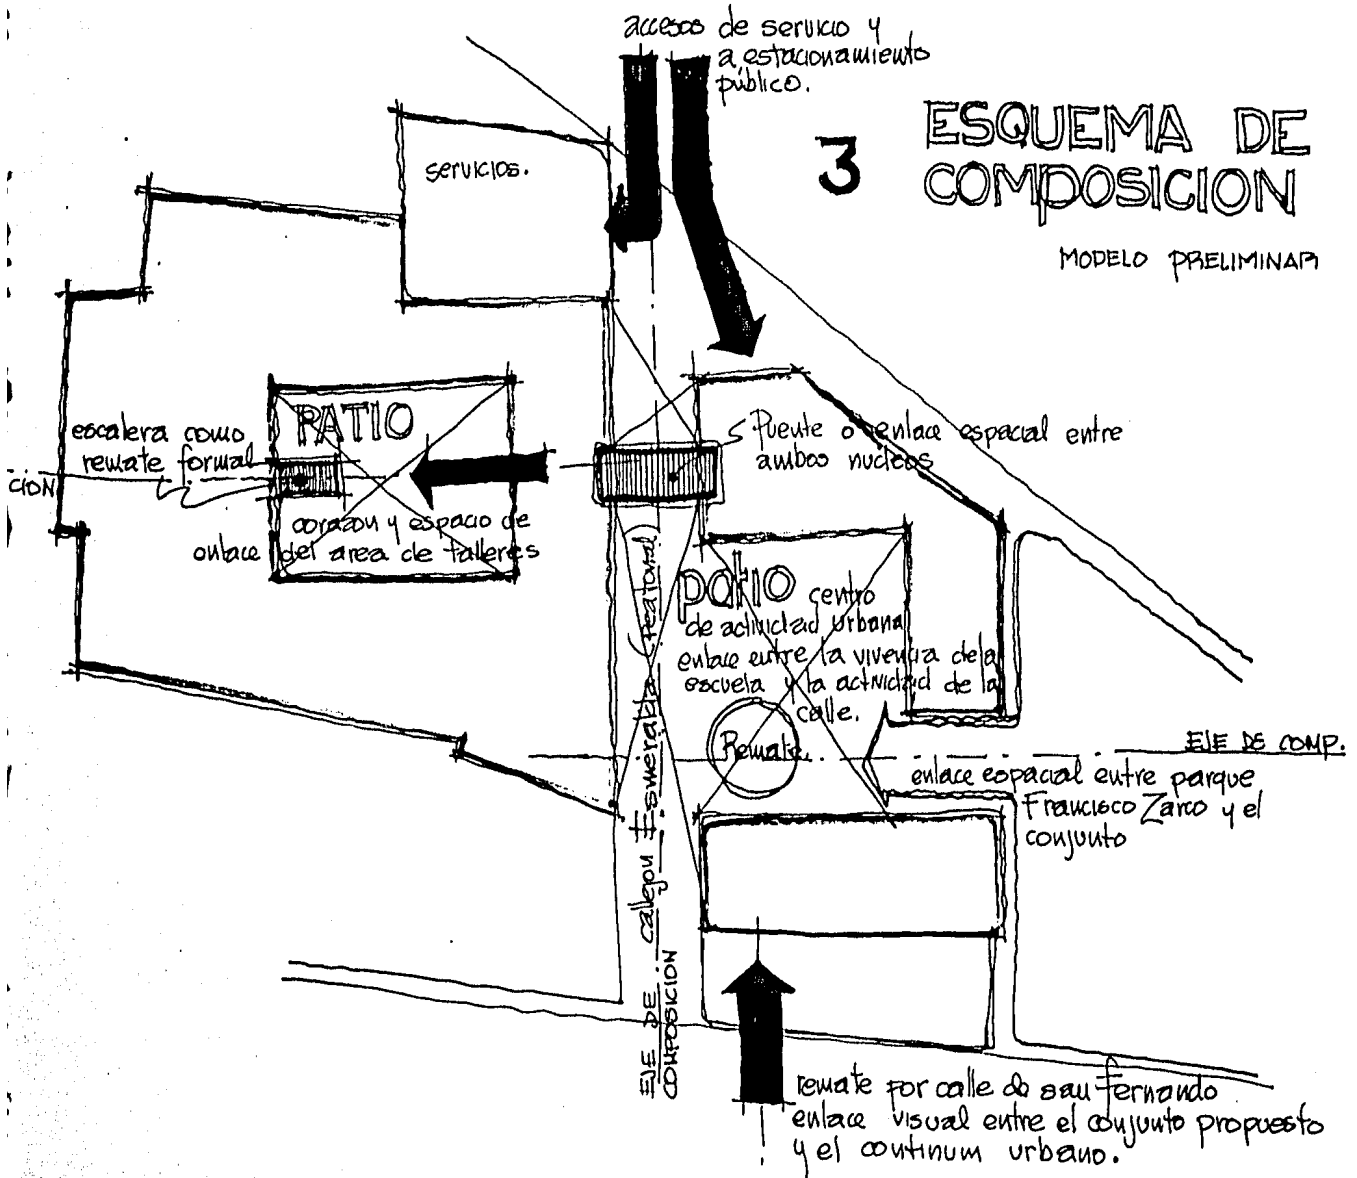 accesos de servicio y
a estacionamiento
público.
3
ESQUEMA DE
COMPOSICION
MODELO PRELIMINAR
servicios.
PATIO
escalera como
remate formal
CION
corazon y espacio de
enlace del area de talleres
Puente o enlace espacial entre
ambos nucleos
patio centro
de actividad urbana
enlace entre la vivencia de la
escuela y la actividad de la
calle.
Remate.
EJE DE COMP.
enlace espacial entre parque
Francisco Zarco y el
conjunto
EJE DE callejon Esmeralda (Peatonal)
COMPOSICION
remate por calle de san fernando
enlace visual entre el conjunto propuesto
y el continum urbano.